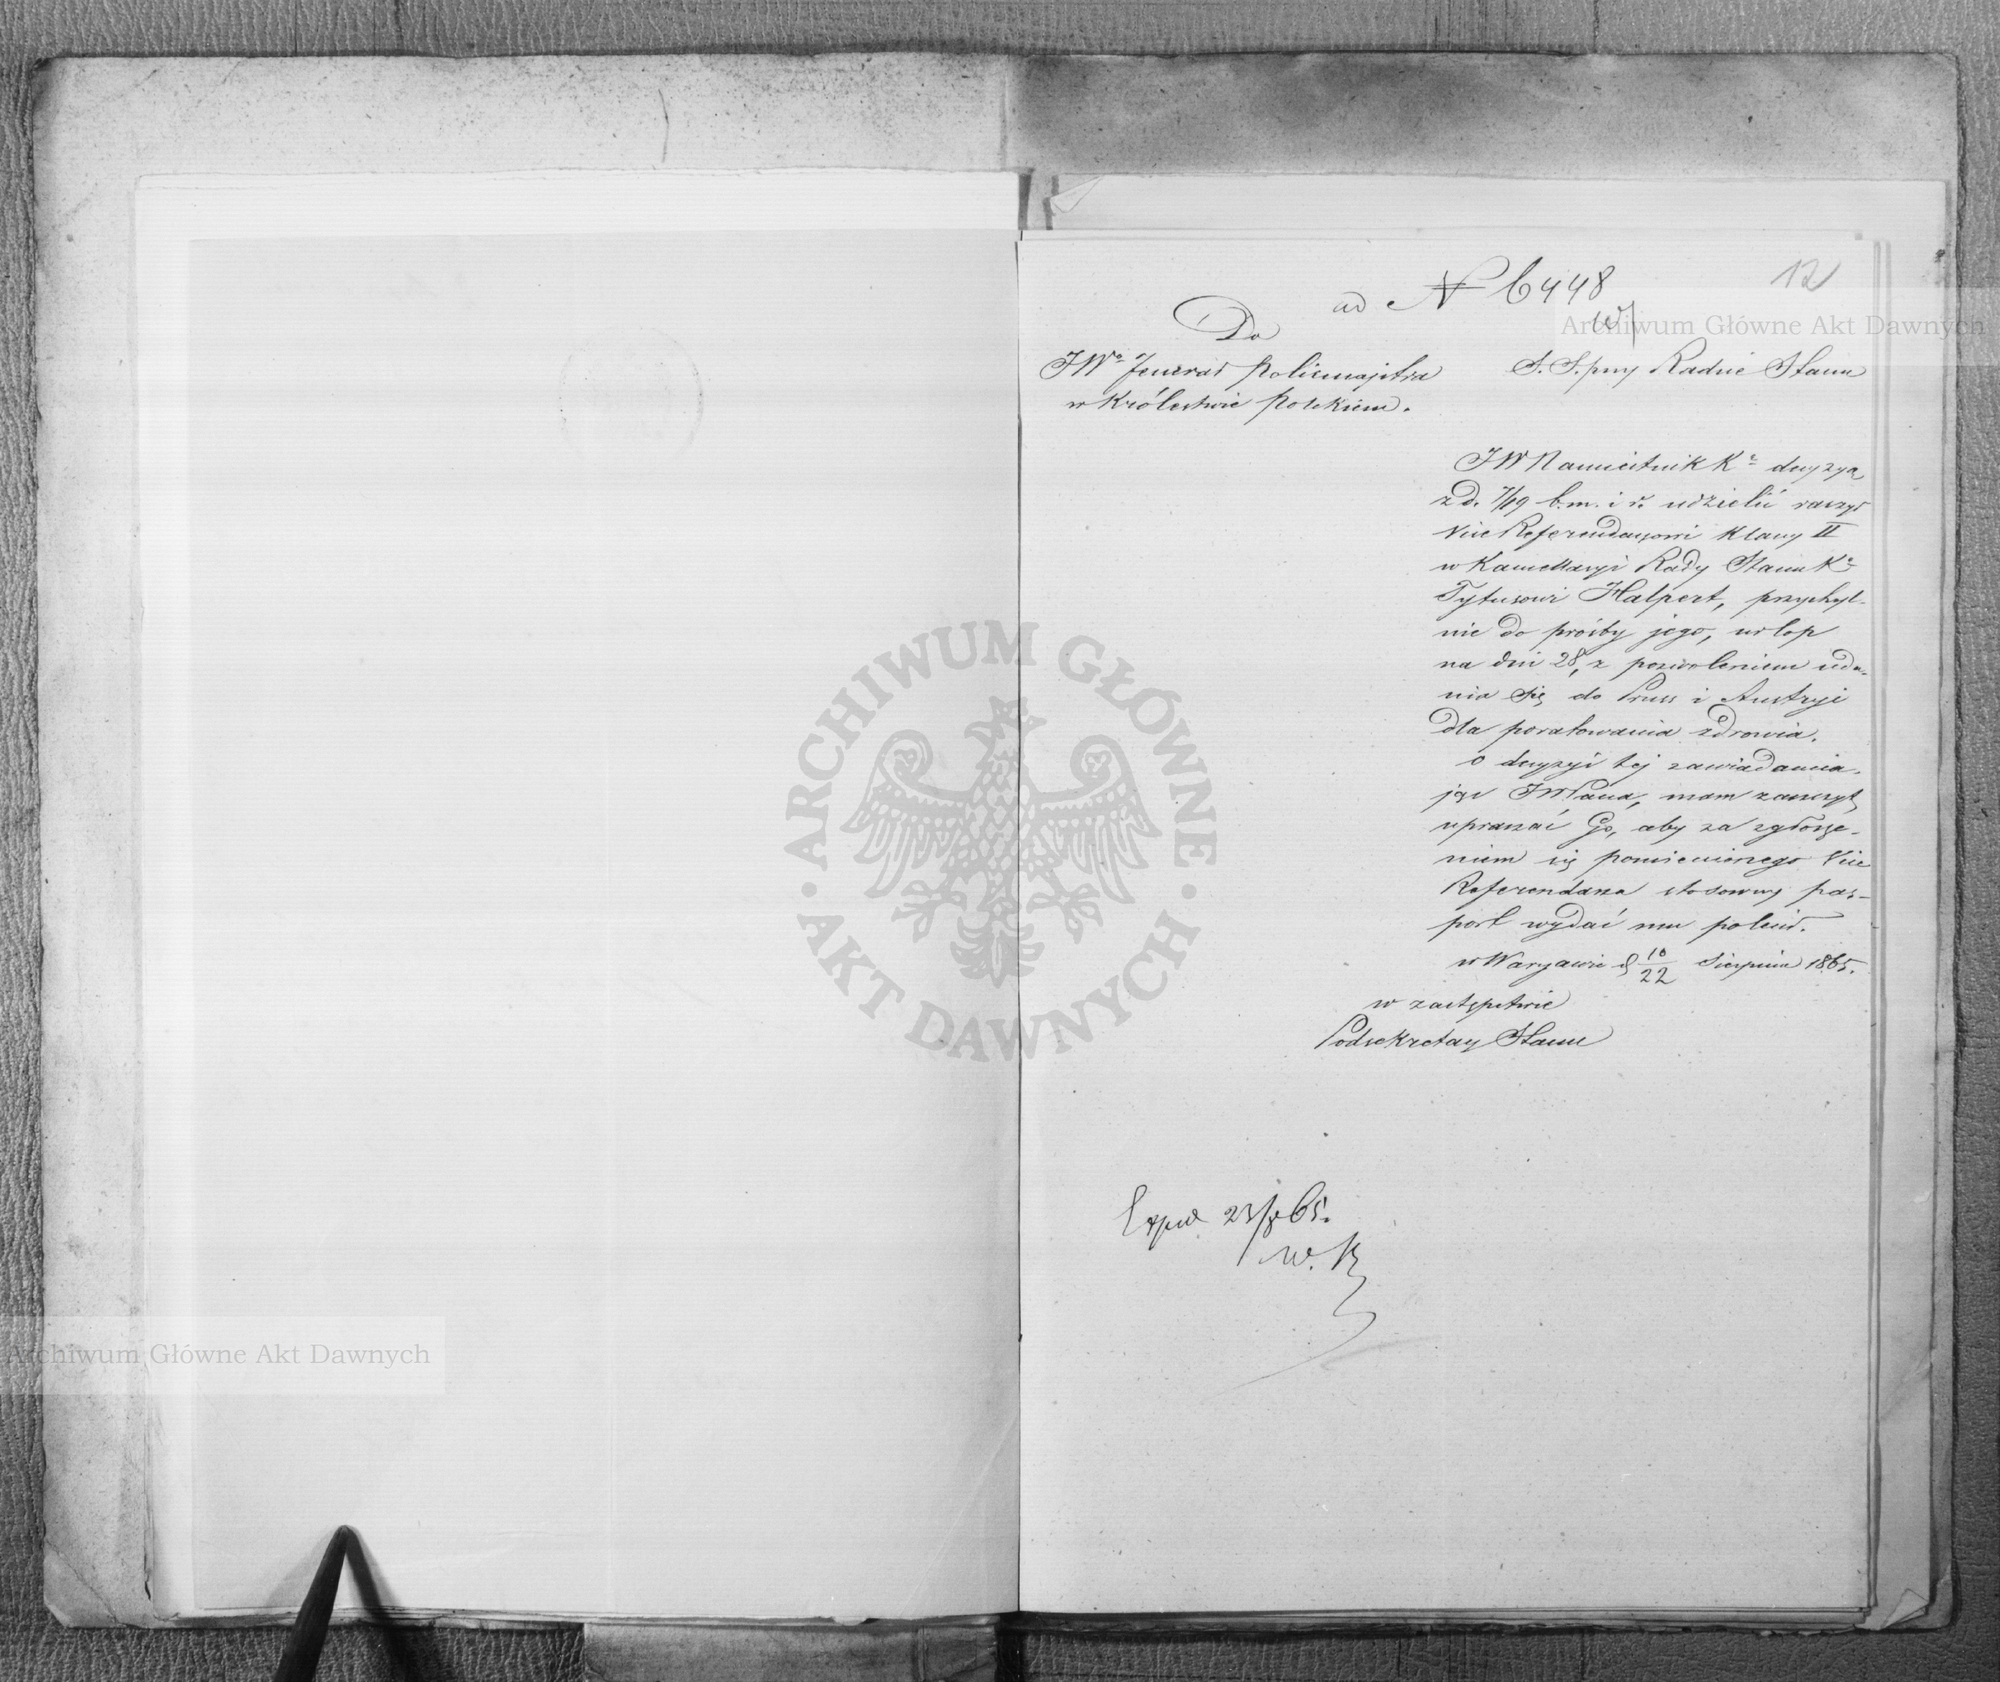 12
ad № 6448
Do
JWo Jenerał Policmajstra
w Królestwie Polskiem.
S. S. przy Radzie Stanu
JW Namiestnik Ka decyzyą
z d. 7/19 b.m. i r. udzielić raczył
Vice Referendarzowi klassy II
w Kancellaryi Rady Stanu Ka
Tytusowi Halpert, przychyl-
nie do prośby jego, urlop
na dni 28, z pozwoleniem uda-
nia się do Pruss i Austryi
dla poratowania zdrowia.
O decyzyi tej zawiadamia-
jąc JWPana, mam zaszczyt
upraszać Go, aby za zgłosze-
niem się pomienionego Vice
Referendarza stosowny pas-
port wydać mu polecił.
w Warszawie d 10/22 Sierpnia 1865.
w zastępstwie
Podsekretarz Stanu
Exped 23/8 65.
W. K
Archiwum Główne Akt Dawnych
Archiwum Główne Akt Dawnych
ARCHIWUM GŁÓWNE · AKT DAWNYCH ·